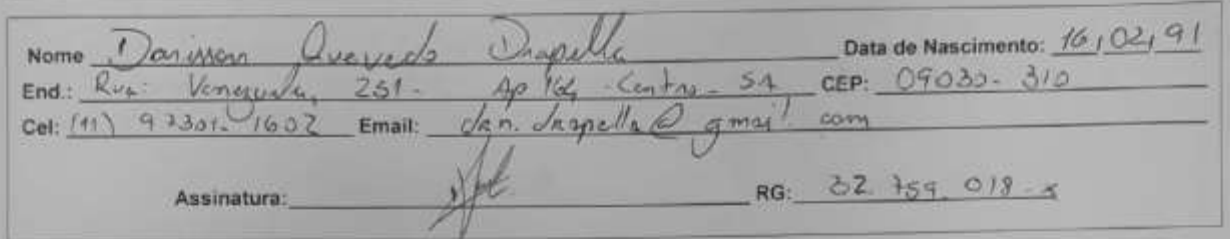 Nome Danisson Quevedo Drapella Data de Nascimento: 16/02/91
End.: Rua: Venezuela, 251- Ap 164 - Centro - SA CEP: 09030-310
Cel: (11) 97301-1602 Email: dan.drapella@gmail.com
Assinatura: RG: 32.759.018-x